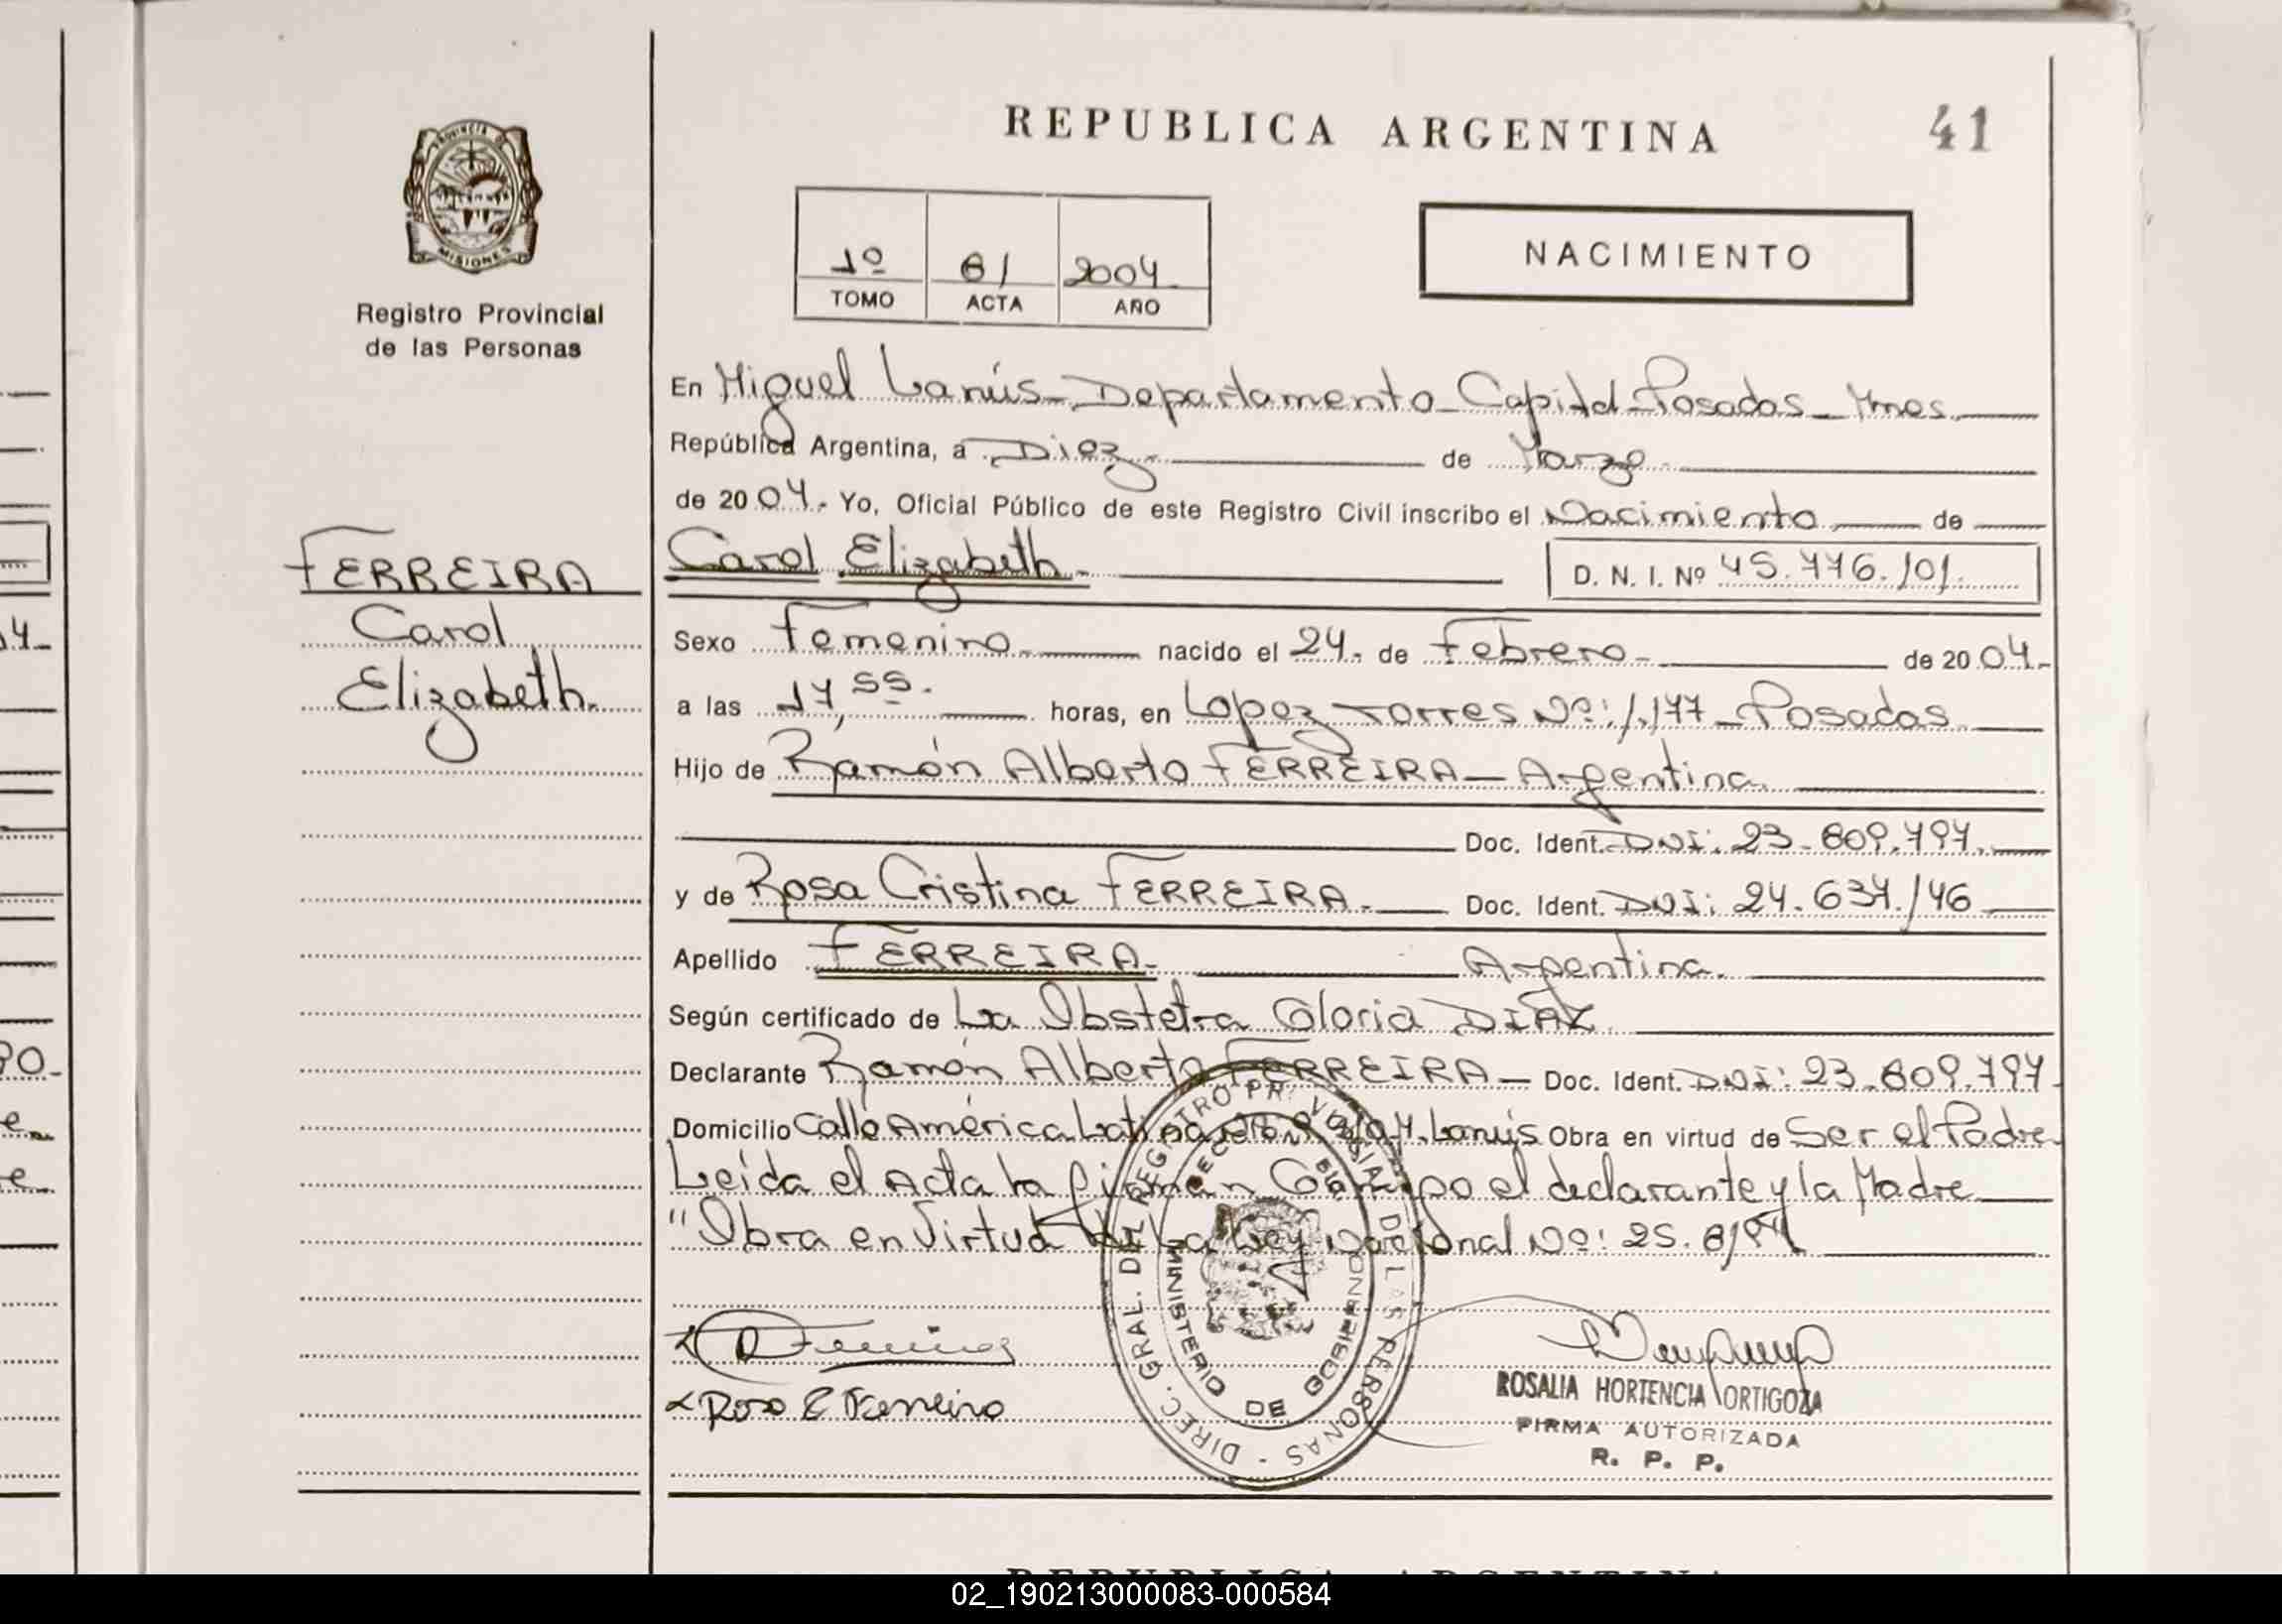 REPUBLICA ARGENTINA
41
PROVINCIA DE
MISIONES
Registro Provincial
de las Personas
1º 81 2004
TOMO ACTA AÑO
NACIMIENTO
En Miguel Lanús - Departamento Capital - Posadas - Mnes
República Argentina, a Diez de Marzo
de 2004. Yo, Oficial Público de este Registro Civil inscribo el Nacimiento de
FERREIRA
Carol
Elizabeth.
Carol Elizabeth. D. N. I. Nº 45.776.101.
Sexo Femenino nacido el 24. de Febrero de 2004.
a las 17,55. horas, en Lopez Torres Nº: 1.177 - Posadas
Hijo de Ramón Alberto FERREIRA - Argentina
Doc. Ident. DNI: 23.809.797.
y de Rosa Cristina FERREIRA. Doc. Ident. DNI: 24.637.146
Apellido FERREIRA. Argentina.
Según certificado de La Obstetra Gloria DIAZ
Declarante Ramón Alberto FERREIRA - Doc. Ident. DNI: 23.809.797
Domicilio Calle América Latina M. Lanús Obra en virtud de Ser el Padre
Leída el Acta la firman Conmigo el declarante y la Madre
"Obra en Virtud de La Ley Nacional Nº: 25.819"
Rosa C Ferreira
DIREC. GRAL. DEL REGISTRO PROVINCIAL DE LAS PERSONAS
MINISTERIO DE GOBIERNO
ROSALIA HORTENCIA ORTIGOZA
FIRMA AUTORIZADA
R. P. P.
REPUBLICA ARGENTINA
02_190213000083-000584